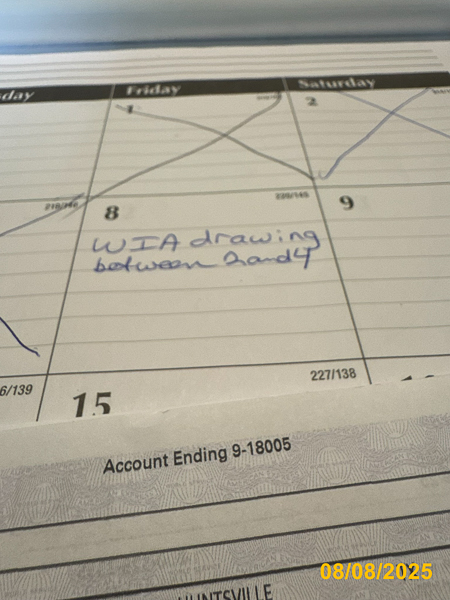 Friday
Saturday
1
2
8
220/145
9
WIA drawing
between 2 and 4
227/138
15
Account Ending 9-18005
HUNTSVILLE
08/08/2025